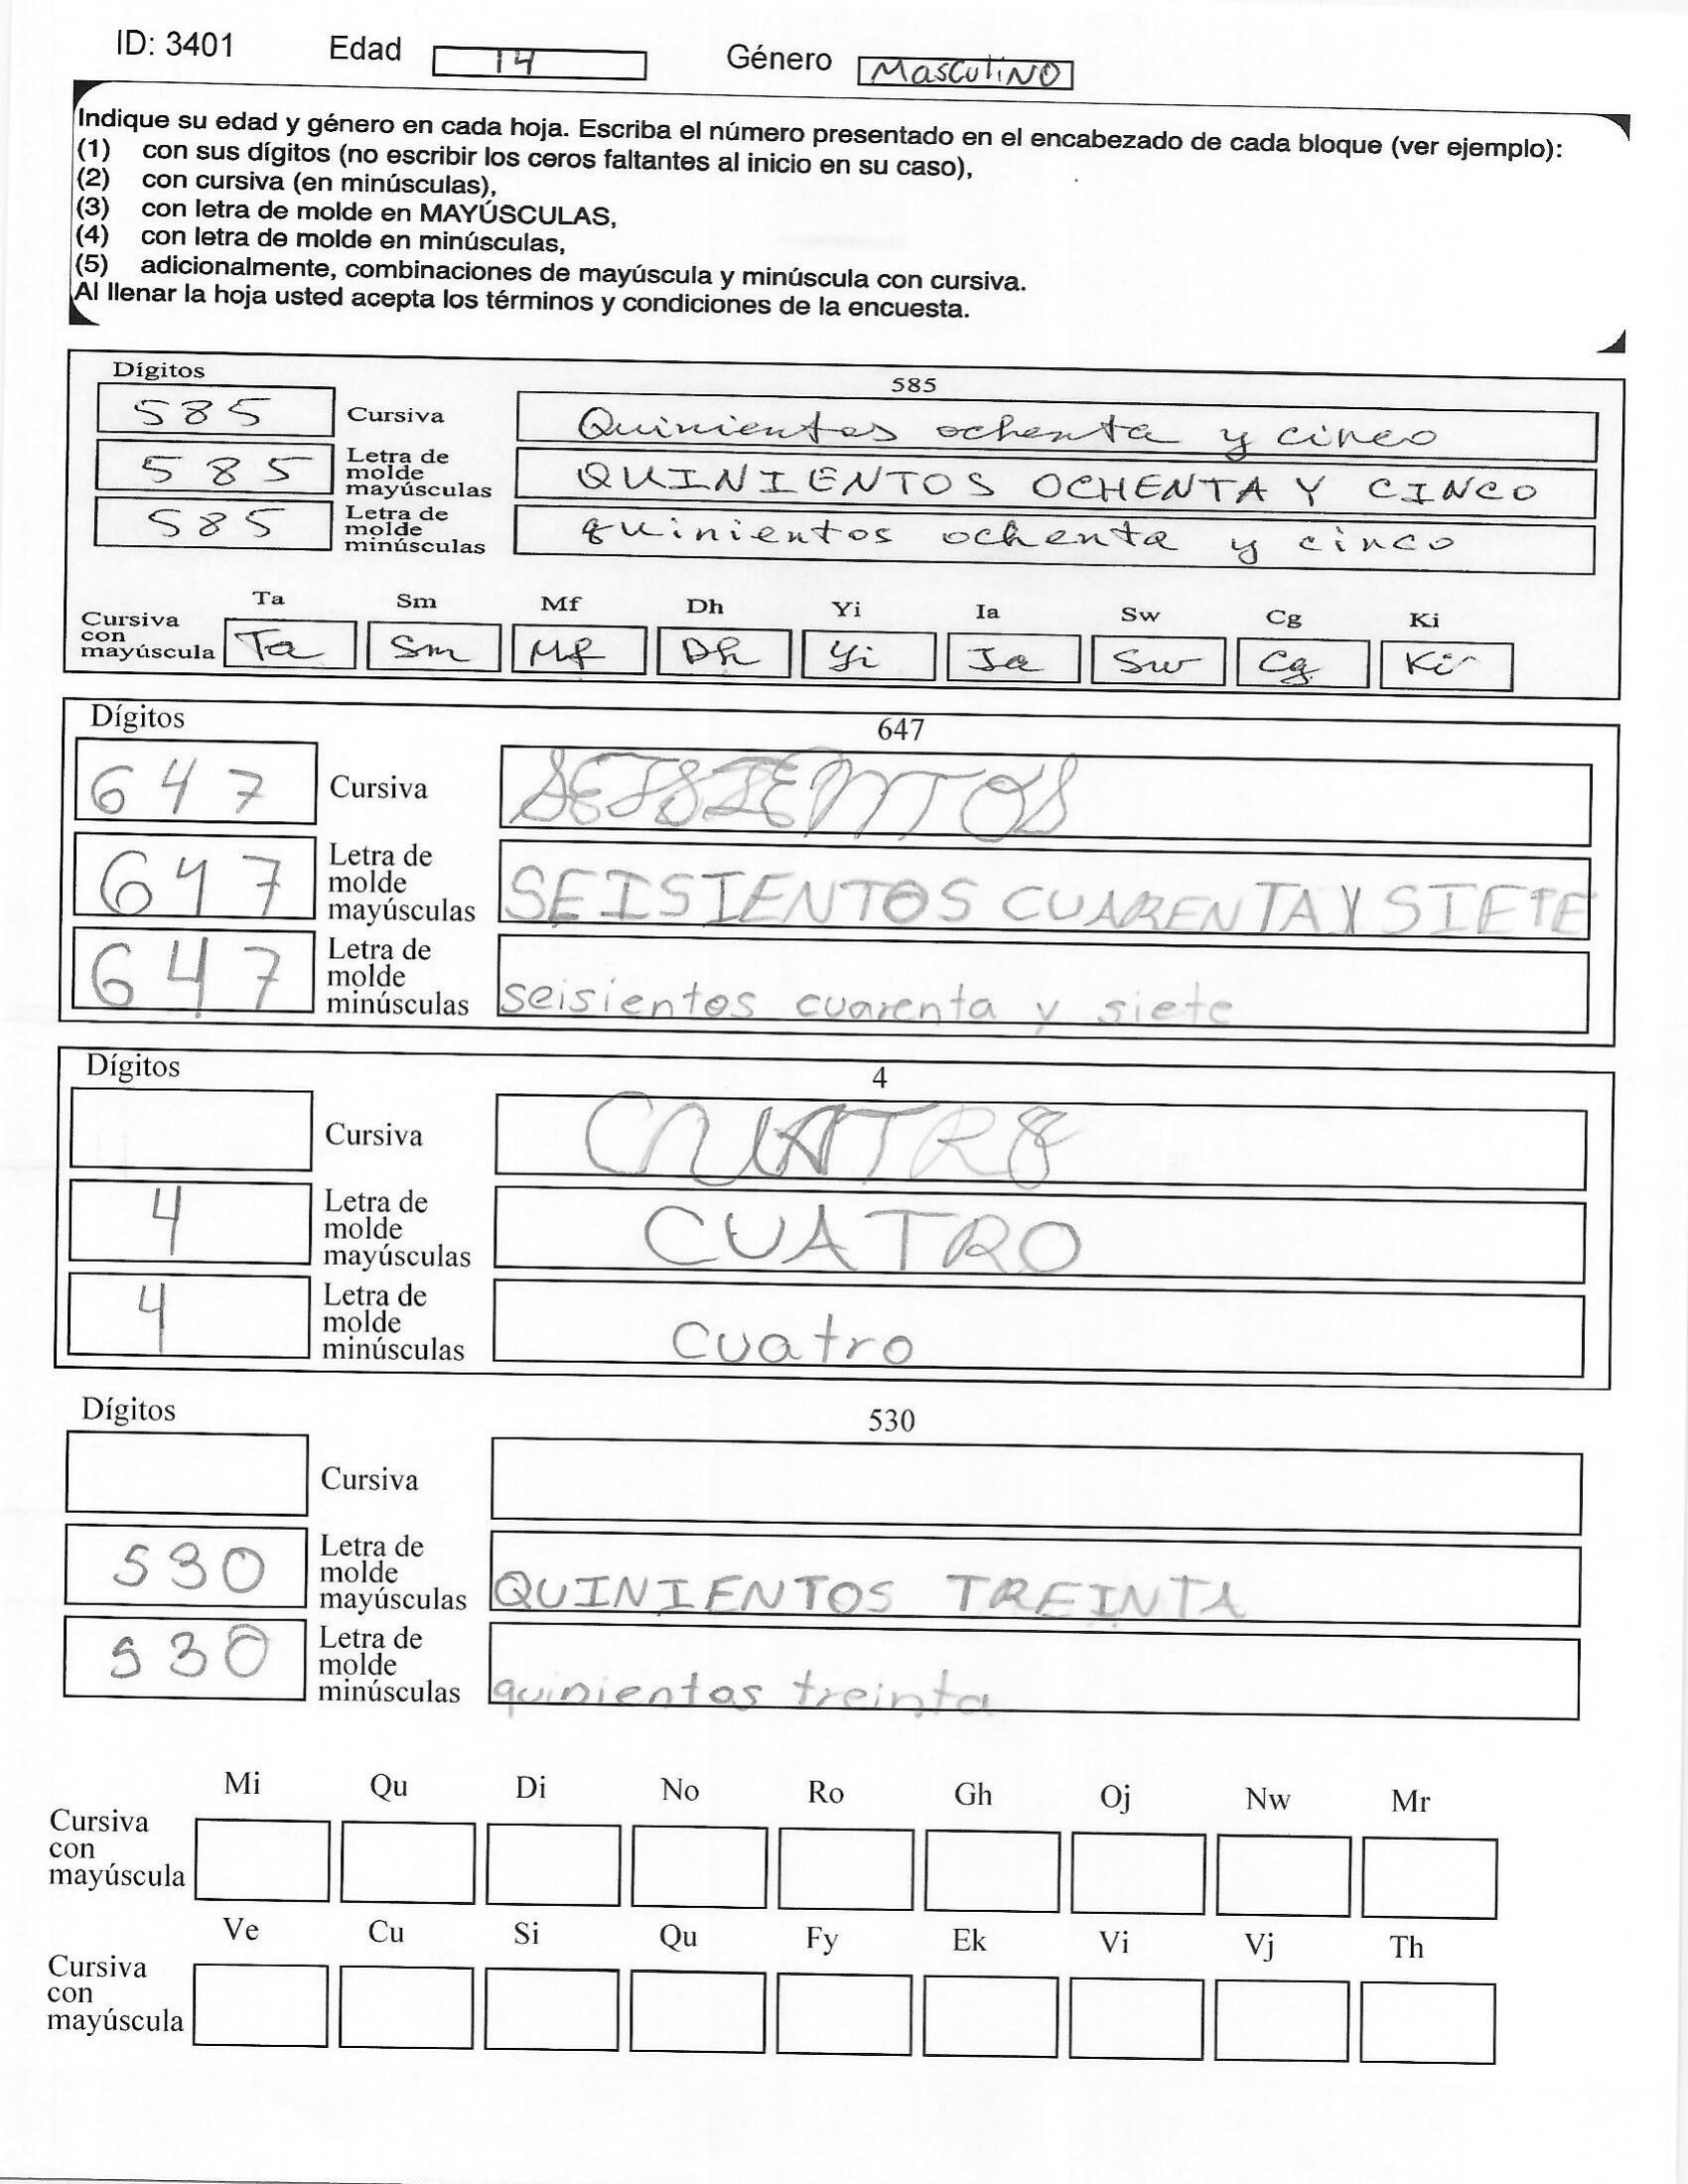 ID: 3401 Edad 14 Género MasculiNO
Indique su edad y género en cada hoja. Escriba el número presentado en el encabezado de cada bloque (ver ejemplo):
(1) con sus dígitos (no escribir los ceros faltantes al inicio en su caso),
(2) con cursiva (en minúsculas),
(3) con letra de molde en MAYÚSCULAS,
(4) con letra de molde en minúsculas,
(5) adicionalmente, combinaciones de mayúscula y minúscula con cursiva.
Al llenar la hoja usted acepta los términos y condiciones de la encuesta.
Dígitos 585
585 Cursiva Quinientos ochenta y cinco
585 Letra de molde mayúsculas QUINIENTOS OCHENTA Y CINCO
585 Letra de molde minúsculas quinientos ochenta y cinco
Ta Sm Mf Dh Yi Ia Sw Cg Ki
Cursiva con mayúscula Ta Sm Mf Dh Yi Ia Sw Cg Ki
Dígitos 647
647 Cursiva SEISIENTOS
647 Letra de molde mayúsculas SEISIENTOS CUARENTA Y SIETE
647 Letra de molde minúsculas seisientos cuarenta y siete
Dígitos 4
Cursiva CUATRO
4 Letra de molde mayúsculas CUATRO
4 Letra de molde minúsculas cuatro
Dígitos 530
Cursiva
530 Letra de molde mayúsculas QUINIENTOS TREINTA
530 Letra de molde minúsculas quinientos treinta
Mi Qu Di No Ro Gh Oj Nw Mr
Cursiva con mayúscula
Ve Cu Si Qu Fy Ek Vi Vj Th
Cursiva con mayúscula